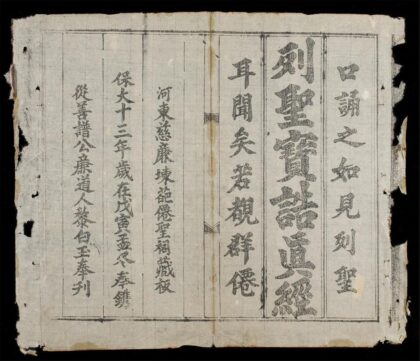 口誦之如見列聖
列聖寶誥眞經
耳聞矣若覩群僊
河東慈廉埬葩僊聖祠藏板
保大十三年歲在戊寅孟冬奉鐫
從善譜公廉道人黎白玉奉刊